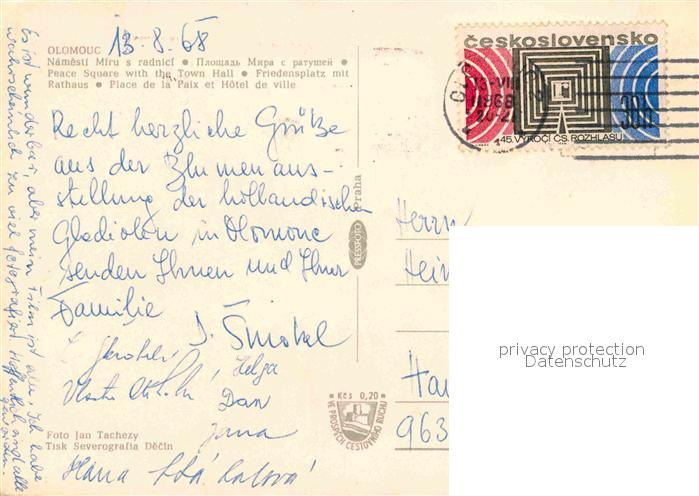 13. 8. 68
OLOMOUC
Náměstí Míru s radnicí ● Площадь Мира с ратушей ●
Peace Square with the Town Hall ● Friedensplatz mit
Rathaus ● Place de la Paix et Hôtel de ville
Recht herzliche Grüße
aus der Blumenaus-
stellung der holländischen
Gladiolen in Olomouc
senden Ihnen und Ihrer
Familie
Helga
Dan
Jana
Hana
Es ist wunderbar, aber mein Film ist alle. Ich habe
wahrscheinlich zu viel fotografiert. Hoffentlich sind alle
geworden.
Foto Jan Tachezy
Tisk Severografia Děčín
PRESSFOTO Praha
Kčs 0,20
VE PROSPĚCH CESTOVNÍHO RUCHU
československo
30h
45. VÝROČÍ ČS. ROZHLASU
13.VIII.
1968
Herrn
963
privacy protection
Datenschutz